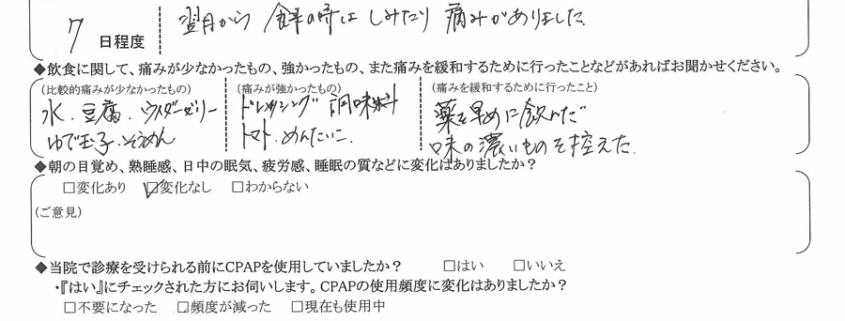 翌日から 食事の時は しみたり 痛みがありました
7 日程度
◆飲食に関して、痛みが少なかったもの、強かったもの、また痛みを緩和するために行ったことなどがあればお聞かせください。
(比較的痛みが少なかったもの) (痛みが強かったもの) (痛みを緩和するために行ったこと)
水、豆腐、ウイダーゼリー ドレッシング 調味料 薬を早めに飲んだ
ゆで玉子、そうめん トマト、めんたいこ 味の濃いものを控えた
◆朝の目覚め、熟睡感、日中の眠気、疲労感、睡眠の質などに変化はありましたか?
□変化あり ☑変化なし □わからない
(ご意見)
◆当院で診療を受けられる前にCPAPを使用していましたか? □はい □いいえ
・『はい』にチェックされた方にお伺いします。CPAPの使用頻度に変化はありましたか?
□不要になった □頻度が減った □現在も使用中